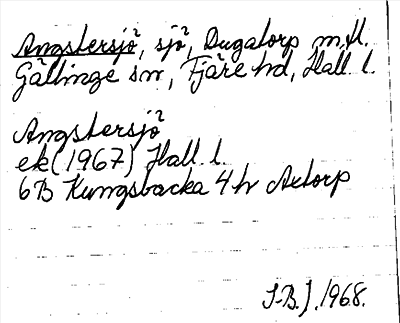 Angstersjö, sjö, Dugatorp m.fl.
Gällinge sn, Fjäre hd, Hall. l.
Angstersjö
ek (1967) Hall. l.
6B Kungsbacka 4h Axtorp
S-B.J. 1968.